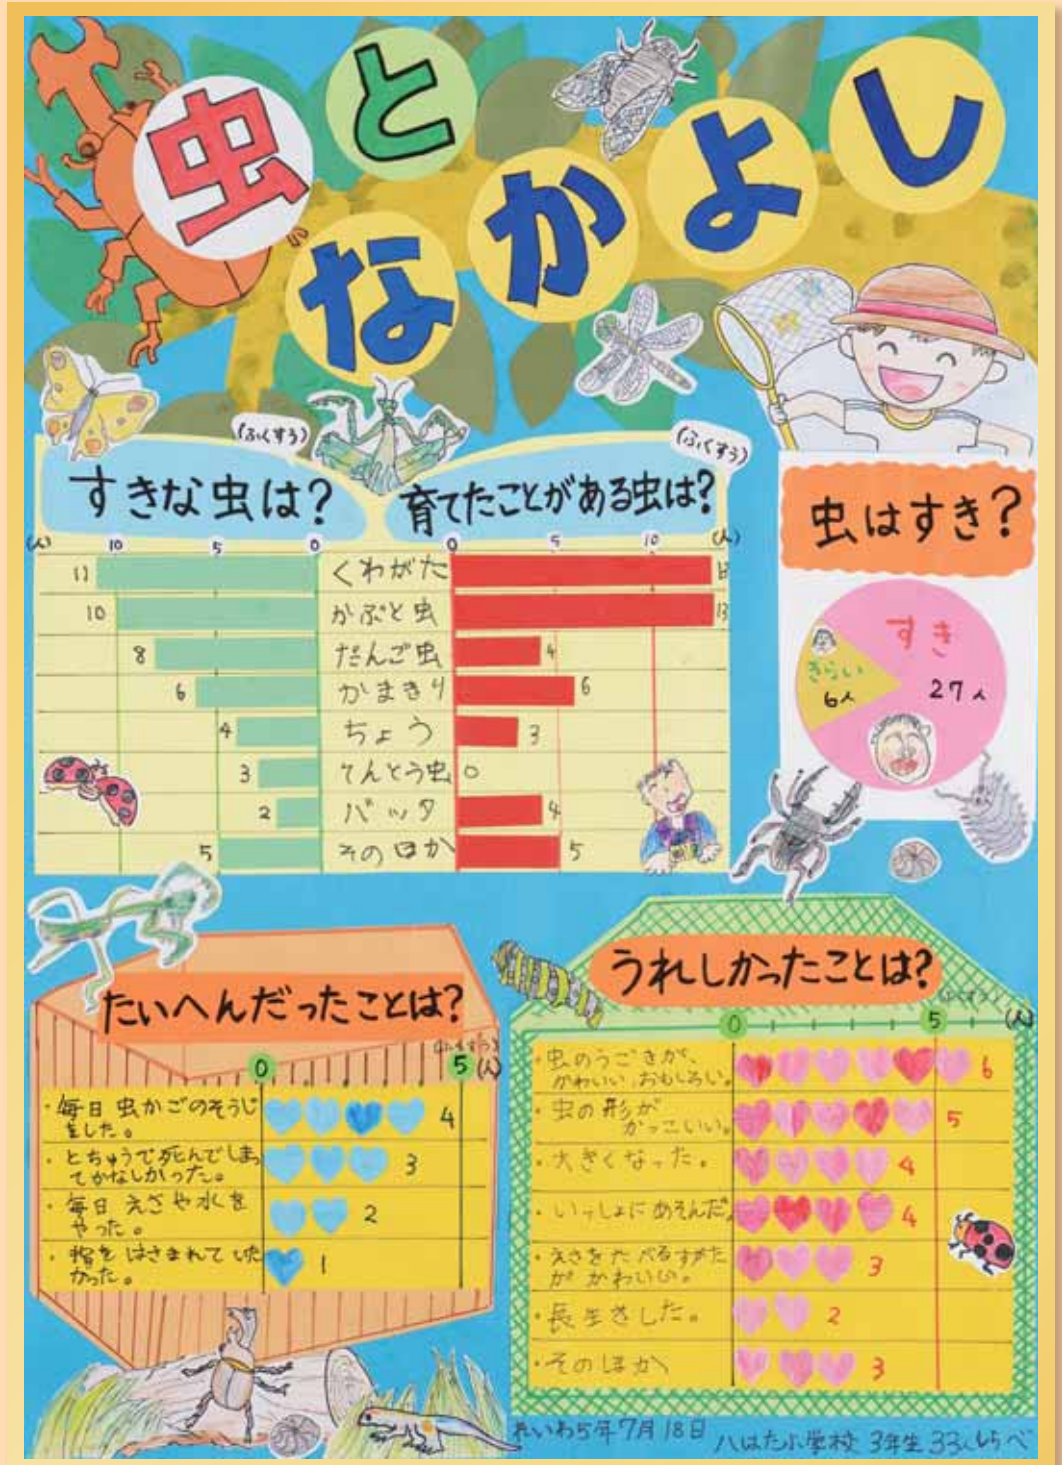 虫と
なかよし
(ふくすう)
すきな虫は?
(ふくすう)
育てたことがある虫は?
虫はすき?
(人) 10 5 0
0 5 10 (人)
11 くわがた
10 かぶと虫 13
8 だんご虫 4
6 かまきり 6
4 ちょう 3
3 てんとう虫 0
2 バッタ 4
5 そのほか 5
すき
27人
きらい
6人
たいへんだったことは?
(ふくすう)
0 5 (人)
・毎日 虫かごのそうじ
をした。 4
・とちゅうで死んでしまっ
てかなしかった。 3
・毎日 えさや水を
やった。 2
・指を はさまれて いた
かった。 1
うれしかったことは?
(ふくすう)
0 5 (人)
・虫のうごきが、
かわいい、おもしろい。 6
・虫の形が
かっこいい。 5
・大きくなった。 4
・いっしょにあそんだ。 4
・えさをたべるすがた
が かわいい。 3
・長生きした。 2
・そのほか 3
れいわ5年7月18日
八はた小学校 3年生 33人しらべ